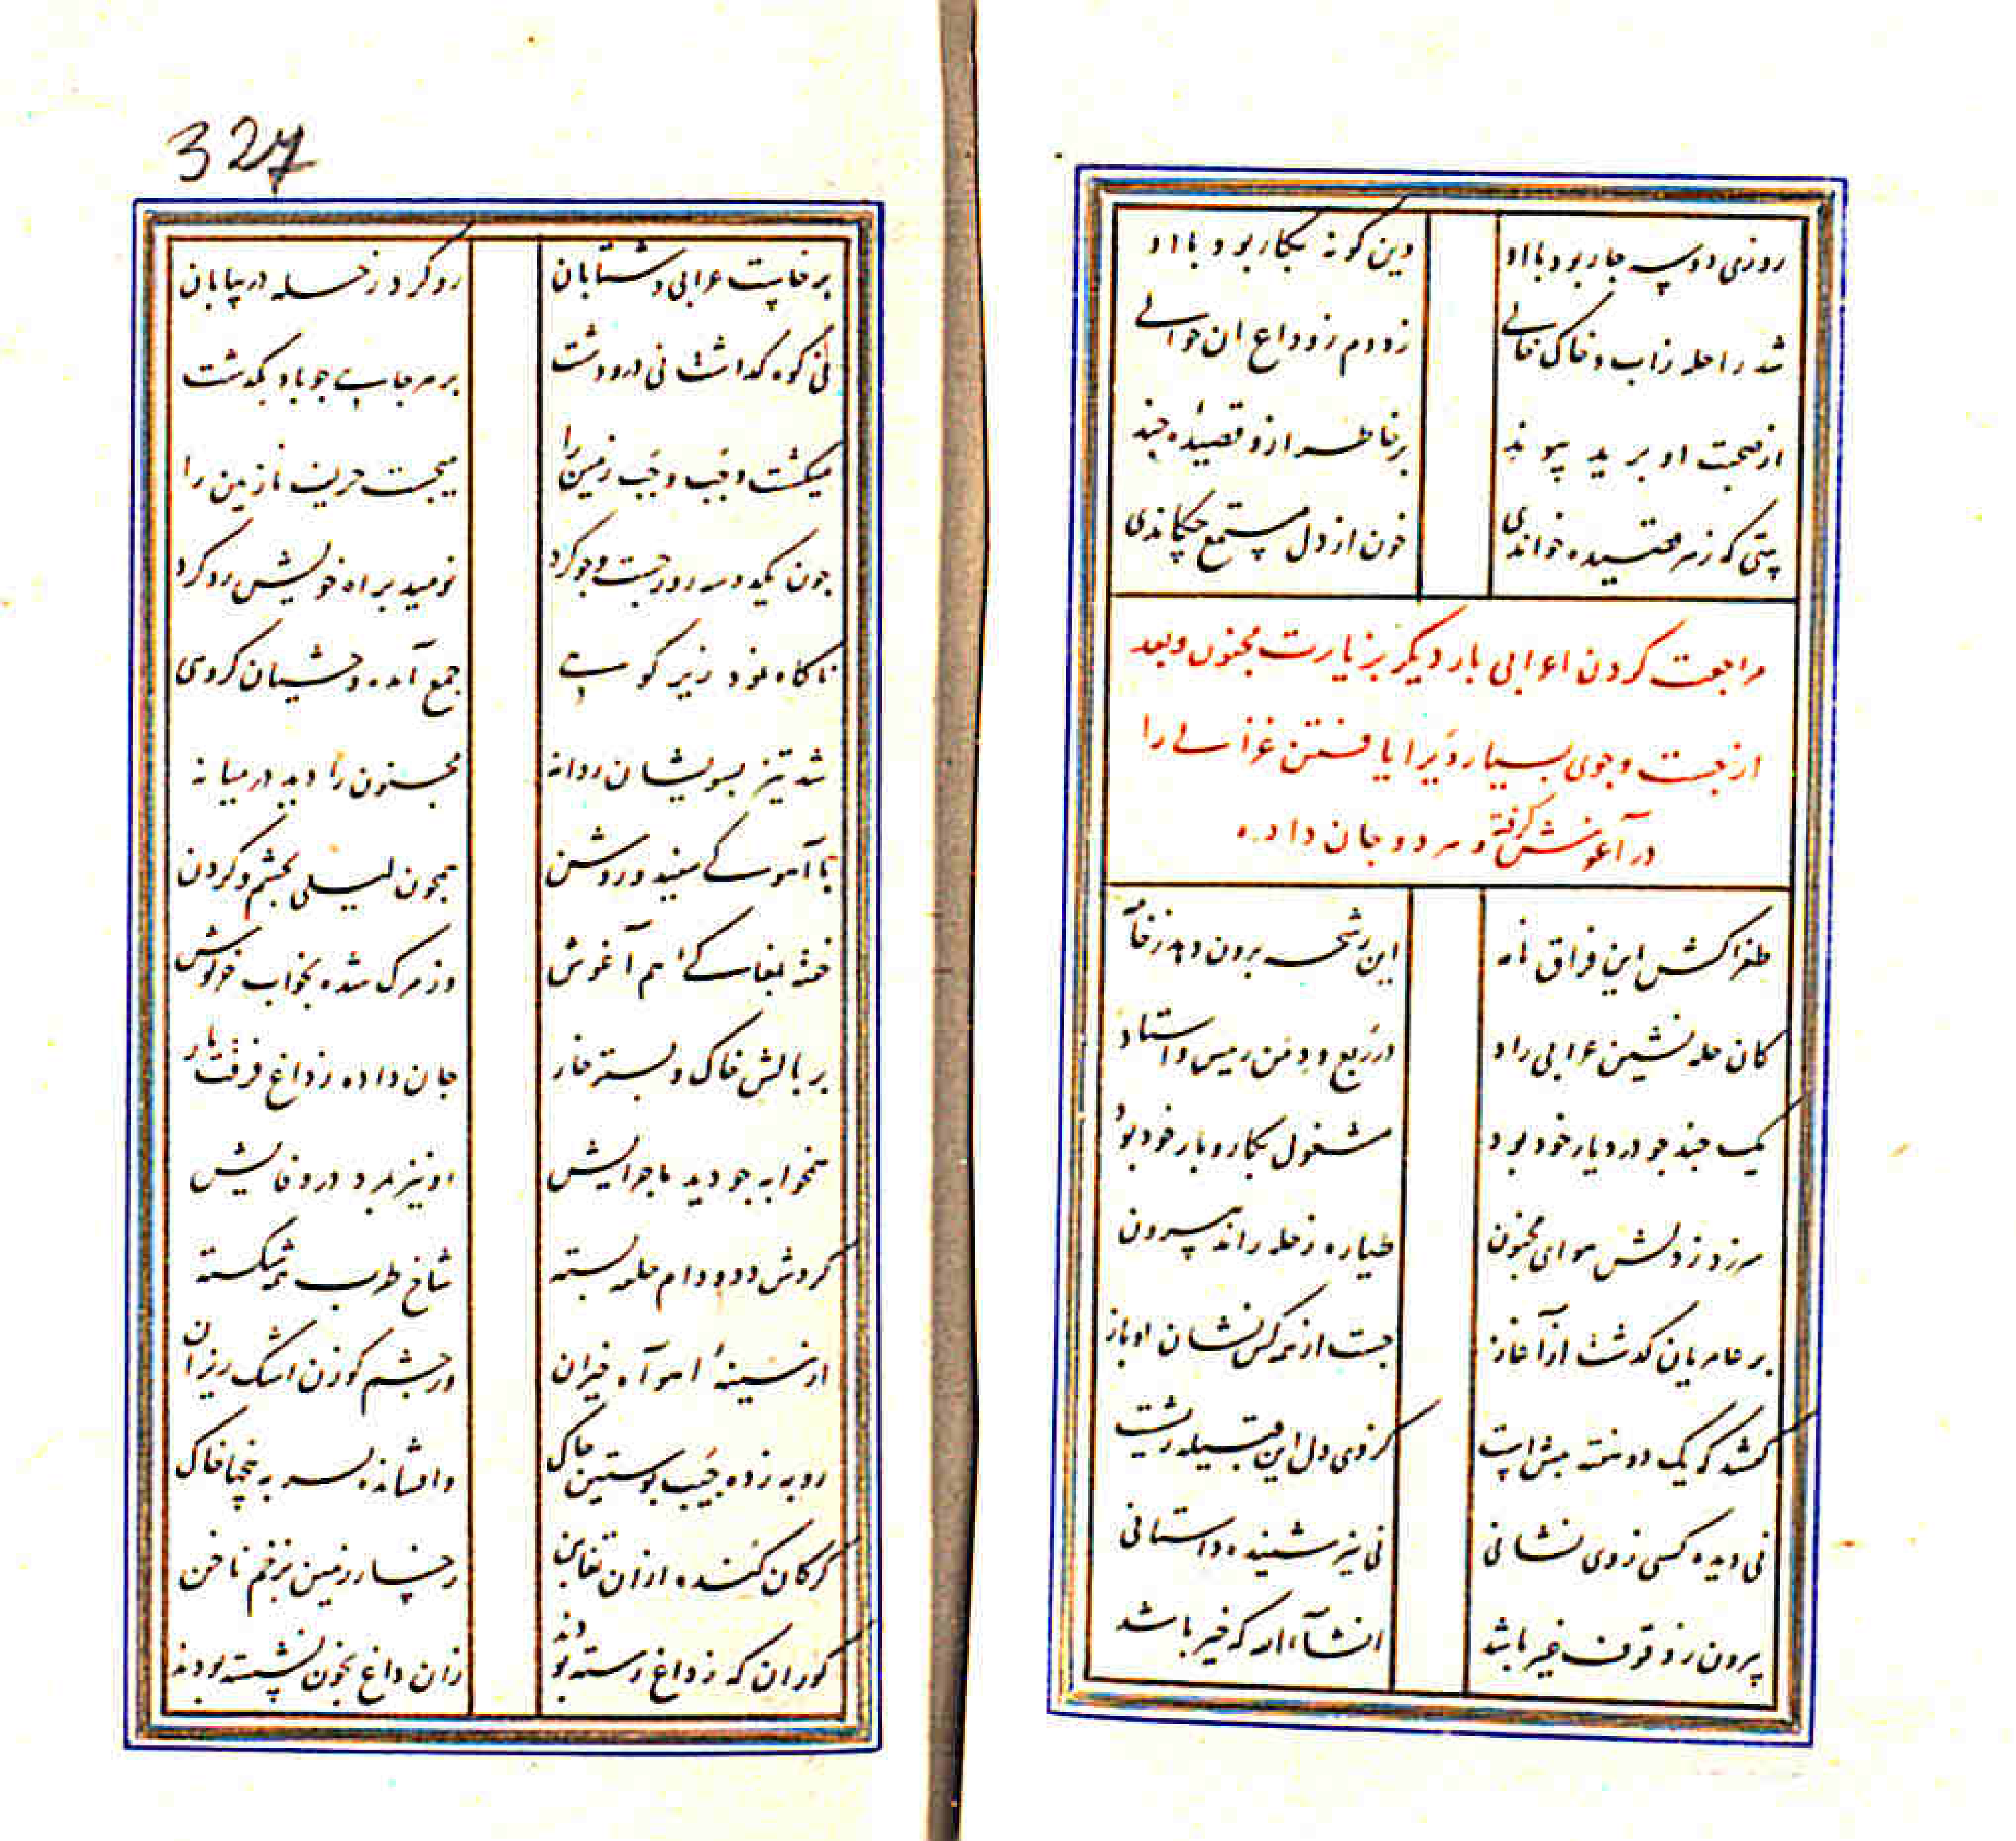 روزی دو سه جار بود با او
وین کونه بکار بود با او
شد راحله زاب و خاک خالی
زد دم ز وداع ان حوالی
از صحبت او برید پیوند
بر خاطر ازو قصیدهٔ چند
بیتی که زهر قصیده خواندی
خون از دل مستمع چکاندی
مراجعت کردن اعرابی بار دیکر بزیارت مجنون و بعد
از جست و جوی بسیار ویرا یافتن غزالی را
در آغوش کرفته و مرده و جان داده
طغراکش این فراق نامه
این رشحه برون دهد ز خامه
کان حله نشین عرابی راد
در ربع و دمن رمیس و استاد
یک چند چو در دیار خود بود
مشغول بکار و بار خود بود
سر زد ز دلش هوای مجنون
طیاره ز حله راند بیرون
بر عامریان کدشت از آغاز
جست از همه کس نشان او باز
کفتند که یک دو هفته بیش است
کز وی دل این قبیله ریشست
نی دیده کسی ز وی نشانی
نی نیز شنیده داستانی
بیرون ز وقوف غیر باشد
انشآءالله که خیر باشد
327
برخاست عرابی و شتابان
رو کرد ز حله در بیابان
نی کوه کداشت نی در و دشت
بر هر جایی چو باد بکدشت
میکشت وجب وجب زمین را
میجست حریف نازنین را
چون یکدو سه روز جست و جو کرد
نومید براه خویش رو کرد
ناکاه نمود زیر کوهی
جمع آمده وحشیان کروهی
شد تیز بسویشان روانه
مجنون را دید در میانه
با آهوکی سفید و روشن
همچون لیلی بچشم و کردن
خفته بمغاکی هم آغوش
وز مرک شده بخواب خرکوش
بر بالش خاک و بستر خار
جان داده ز داغ فرقت یار
همخوابه چو دید ماجرایش
او نیز بمرد در وفایش
کردش دد و دام حلقه بسته
شاخ طرب همه شکسته
از سینهٔ آهو آه خیزان
وز چشم کوزن اشک ریزان
روبه زده جیب پوستین چاک
وافشانده بسر به پنجها خاک
کرکان کنده ازان تغابن
رخسار زمین بزخم ناخن
کوران که ز داغ رسته بودند
زان داغ بخون نشسته بودند